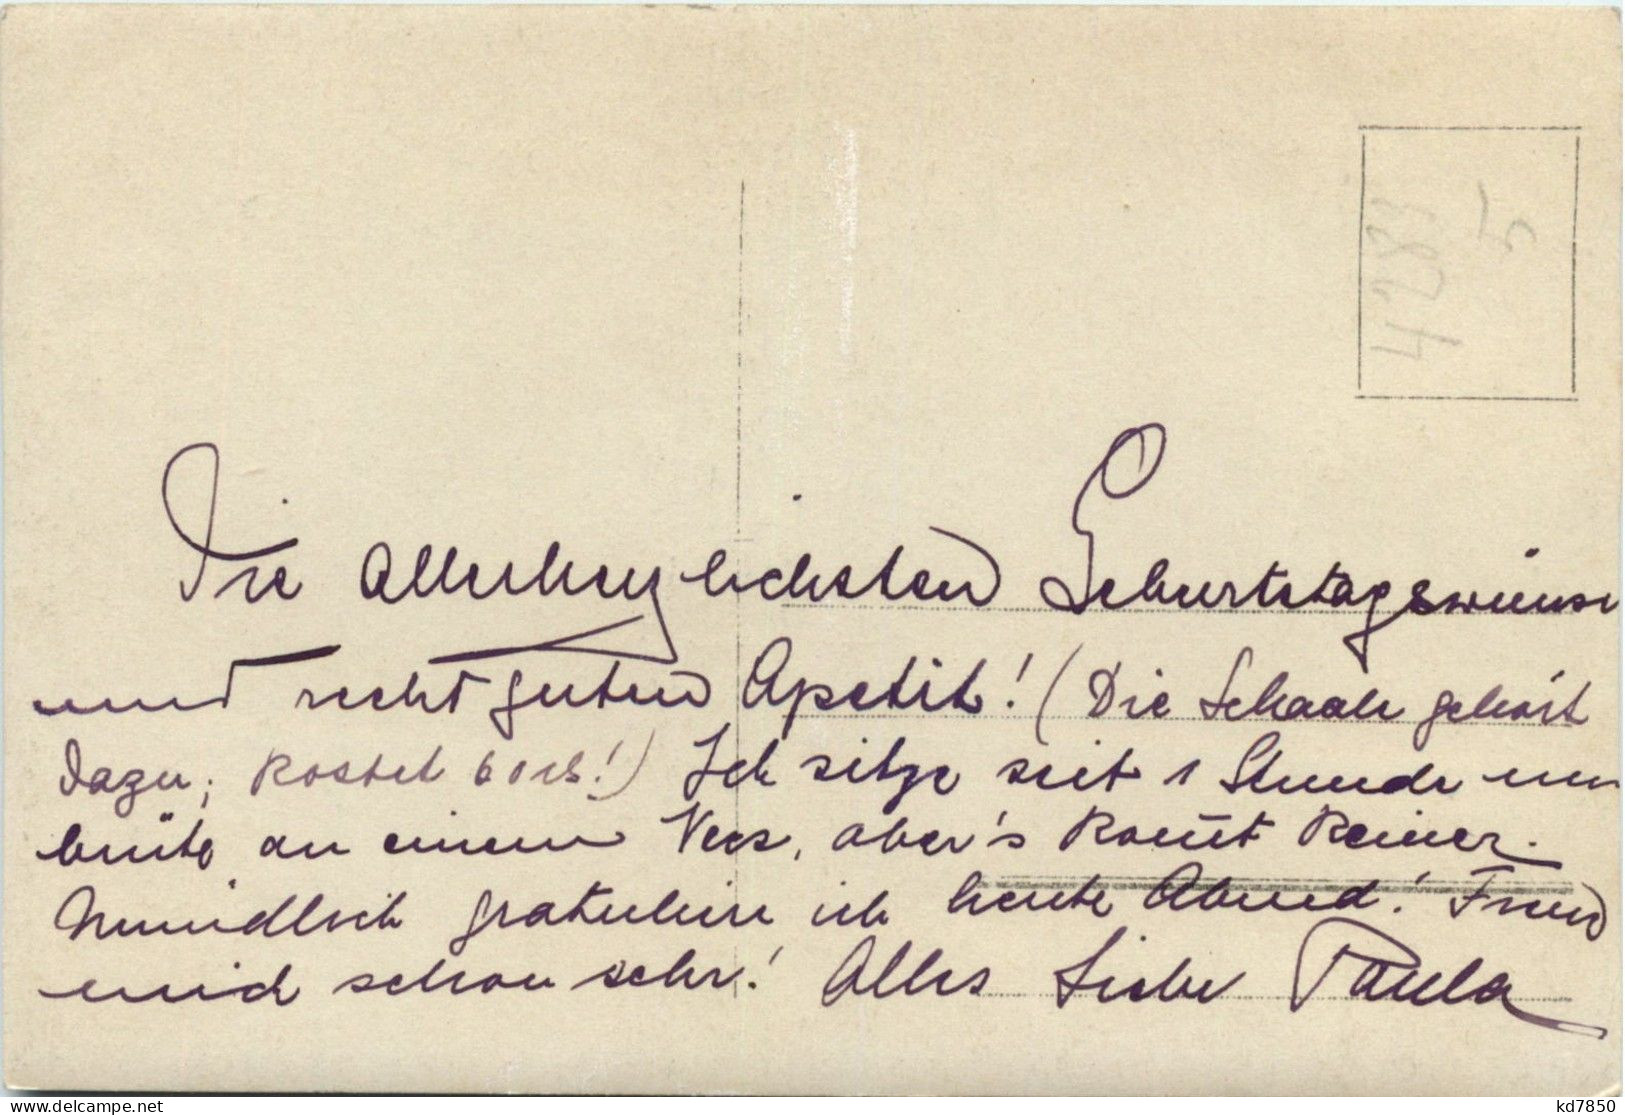 4289
5
Die Allerherzlichsten Geburtstagswünsch
und recht guten Apetit! (Die Schaale gehört
dazu; kostet 60 ch!) Ich sitze seit 1 Stunde und
brüte an einem Vers, aber's komt keiner.
Mündlich gratuliere ich heute Abend! Freue
mich schon sehr! Alles Liebe Paula
www.delcampe.net
kd7850